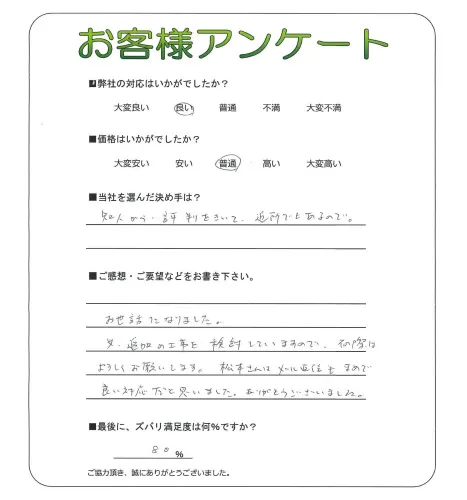 お客様アンケート
■弊社の対応はいかがでしたか？
大変良い 良い 普通 不満 大変不満
■価格はいかがでしたか？
大変安い 安い 普通 高い 大変高い
■当社を選んだ決め手は？
知人から評判をきいて、近所でもあるので。
■ご感想・ご要望などをお書き下さい。
お世話になりました。
又、追加の工事を検討していますので、その際は
よろしくお願いします。松本さんはメール返信も
良い対応だと思いました。ありがとうございました。
■最後に、ズバリ満足度は何%ですか？
80%
ご協力頂き、誠にありがとうございました。